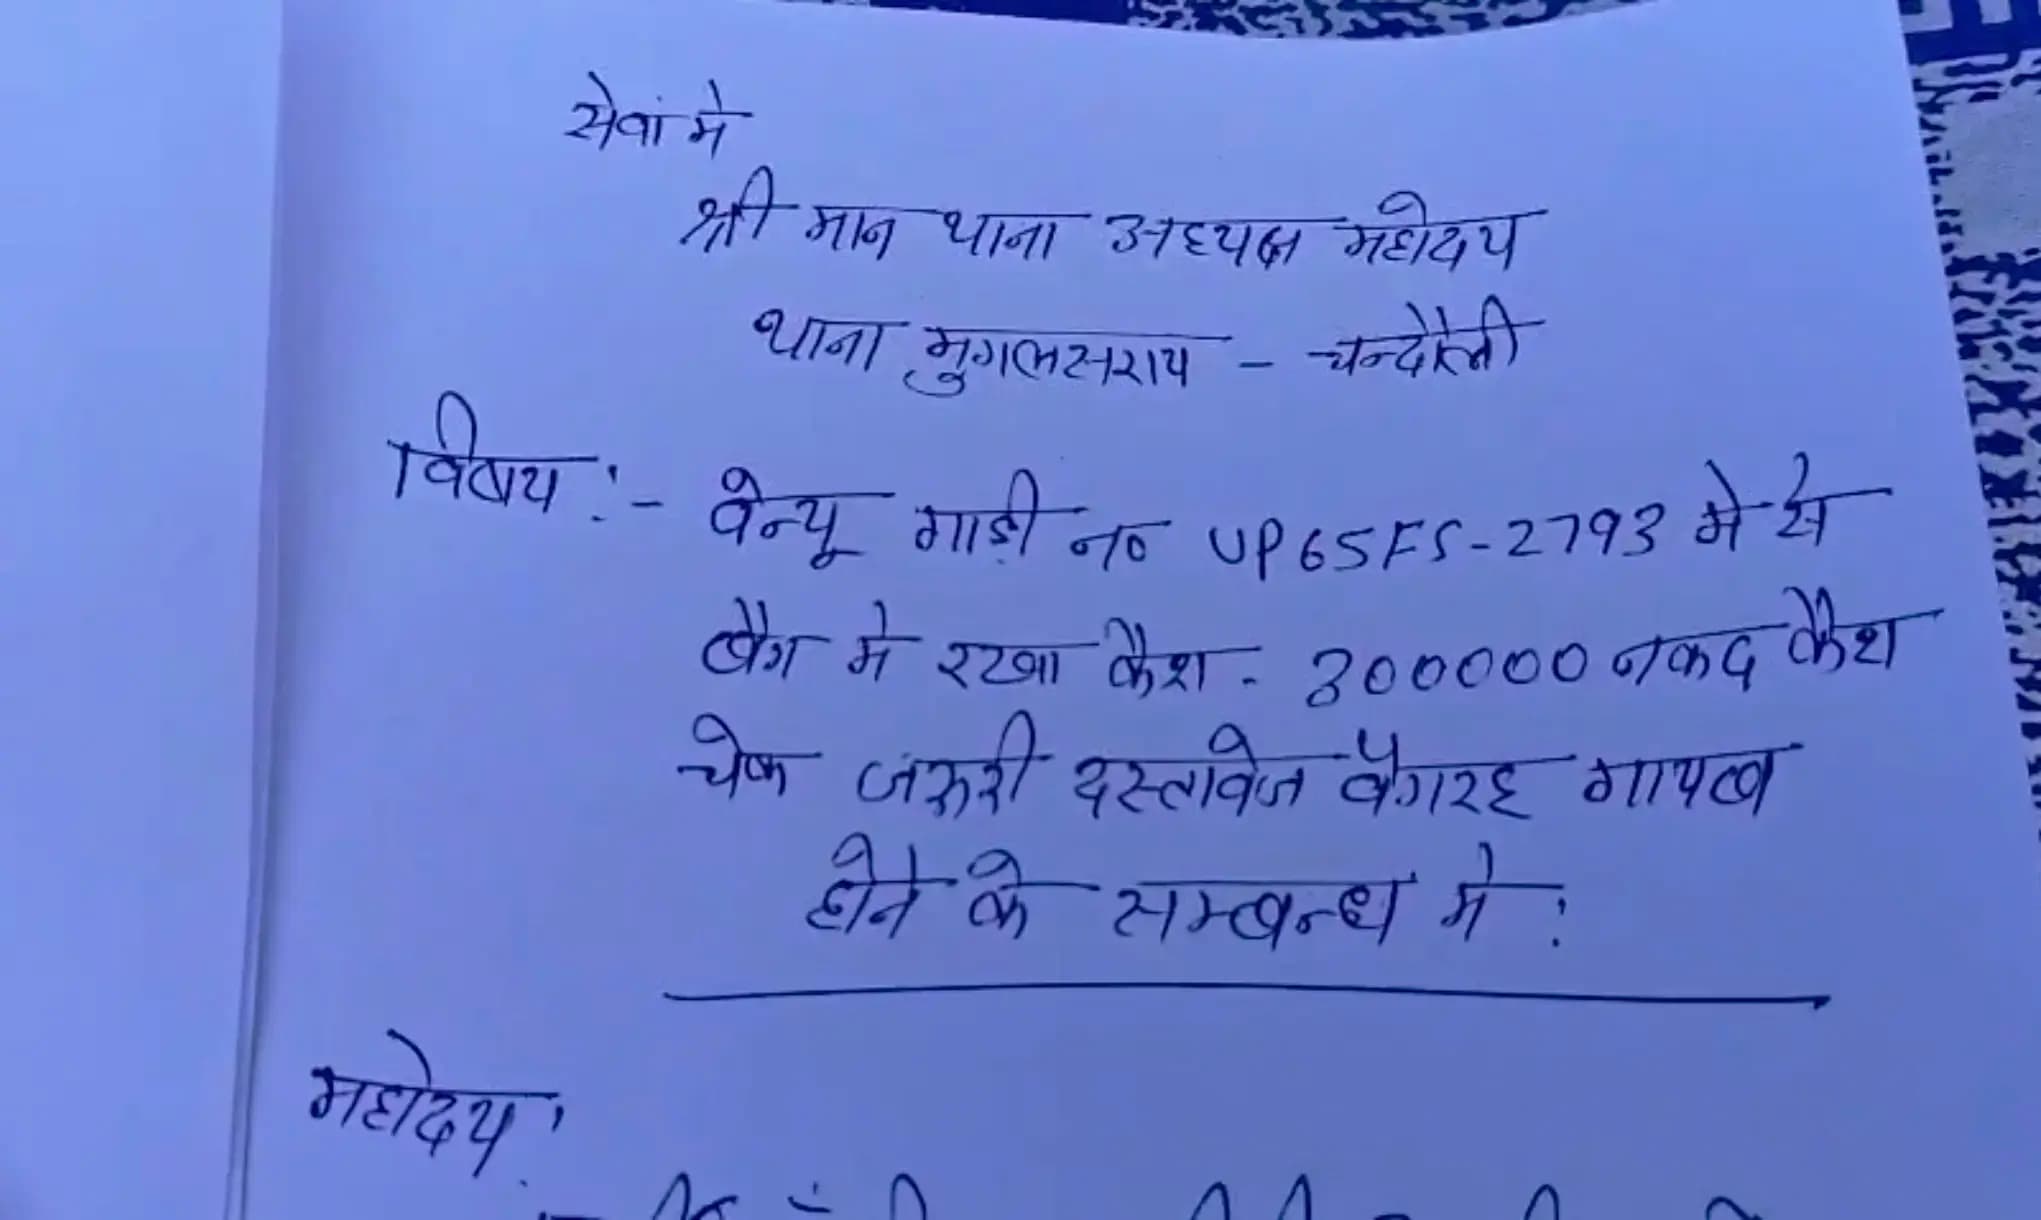 सेवां मे
श्री मान थाना अध्यक्ष महोदय
थाना मुगलसराय - चन्दौली
विषय :- वेन्यू गाड़ी न० UP65FS-2793 मे से
बैग मे रखा कैश - 300000 नकद कैश
चेक जरुरी दस्तावेज वैगरह गायब
होने के सम्बन्ध मे :
महोदय :